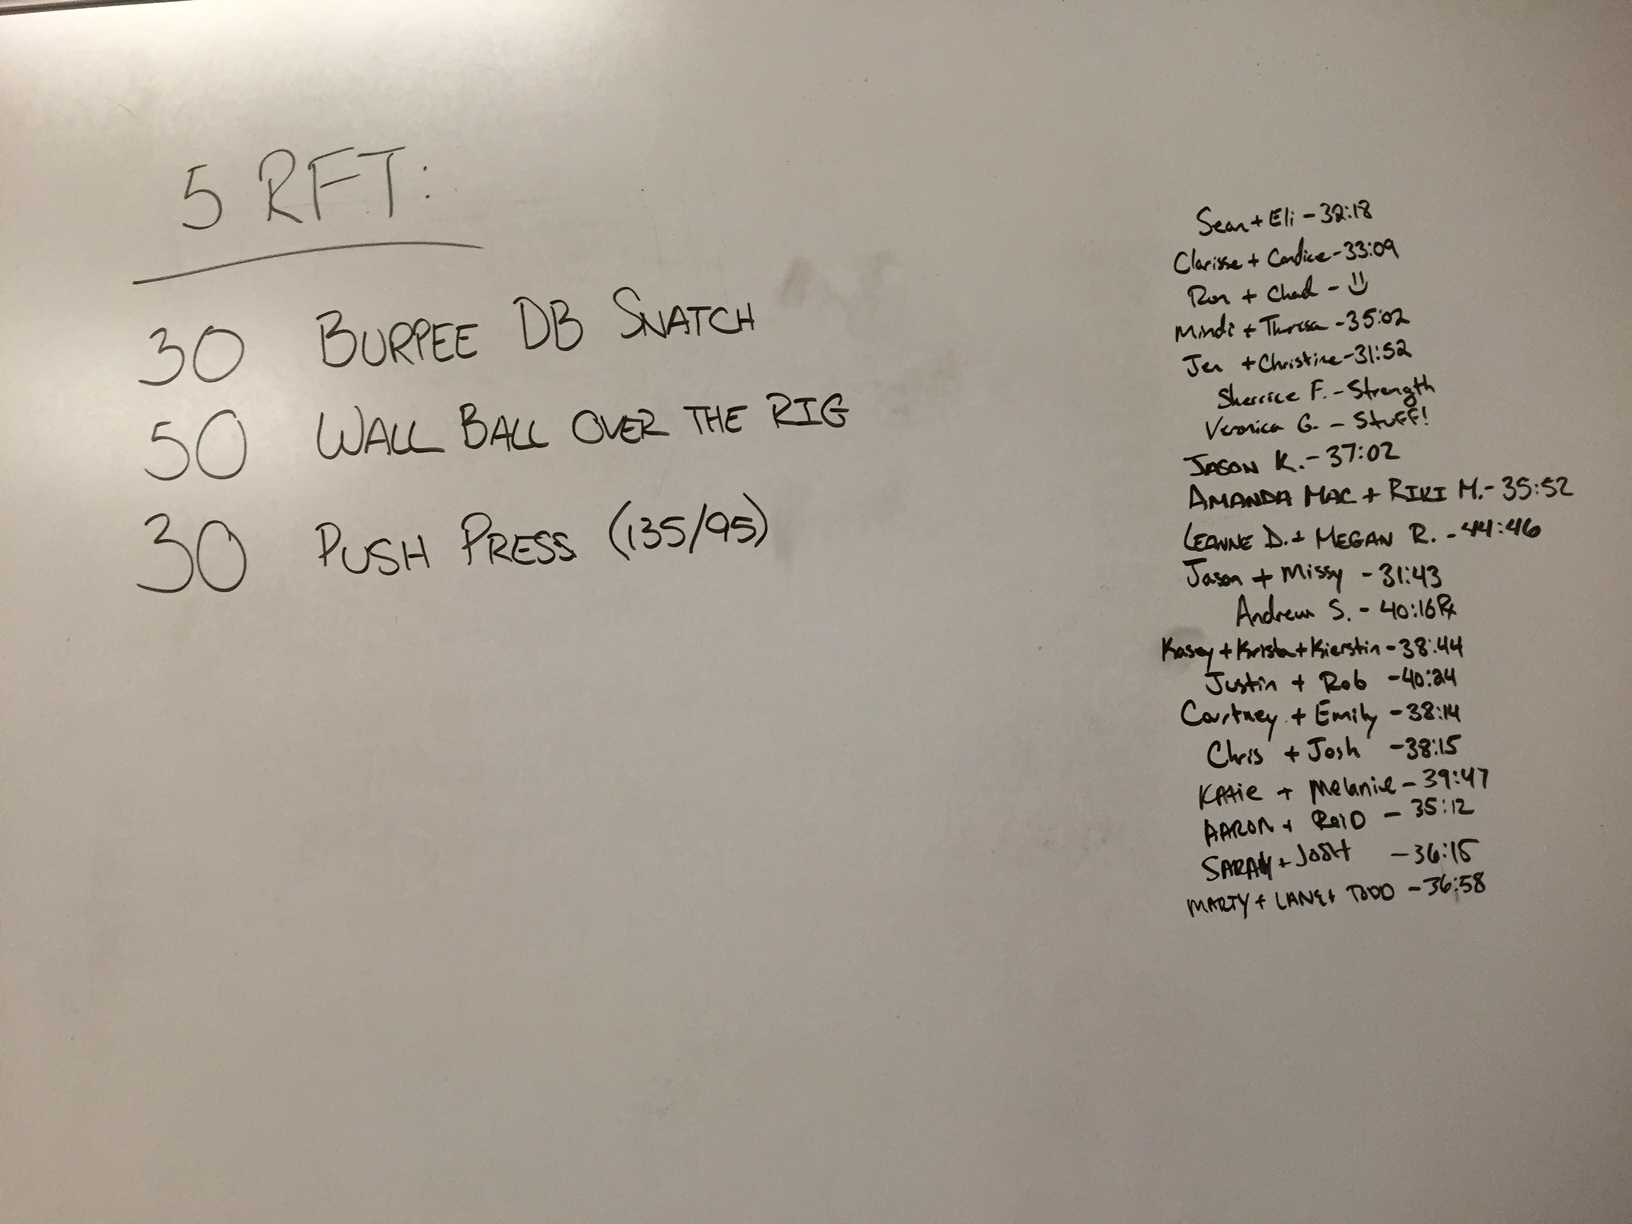 5 RFT:
30 BURPEE DB SNATCH
50 WALL BALL OVER THE RIG
30 PUSH PRESS (135/95)
Sean + Eli - 32:18
Clarisse + Candice - 33:09
Ron + Chad -
Mindi + Theresa - 35:02
Jen + Christine - 31:52
Sherrice F. - Strength
Veronica G. - STUFF!
JASON K. - 37:02
AMANDA MAC + RIKI M. - 35:52
LEANNE D. + MEGAN R. - 44:46
Jason + Missy - 31:43
Andrew S. - 40:16 Rx
Kasey + Krista + Kierstin - 38:44
Justin + Rob - 40:24
Courtney + Emily - 38:14
Chris + Josh - 38:15
KATIE + Melanie - 39:47
AARON + REID - 35:12
SARAH + JOSH - 36:15
MARTY + LANE + TODD - 36:58